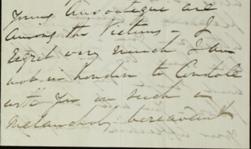 Young are
among the Victims – I
regret very much I am
not in London to Condole
with you on such a
melancholy bereavement